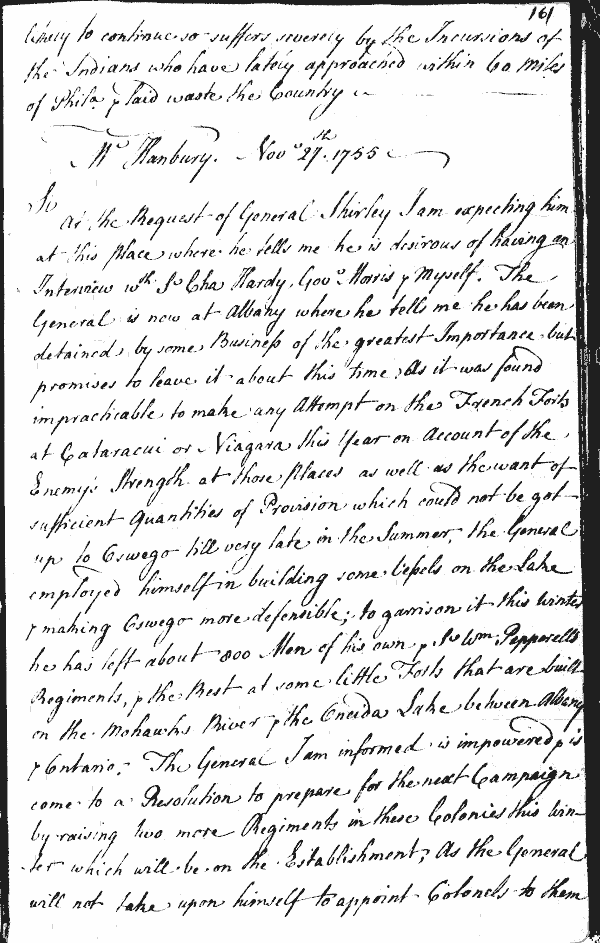 161
likely to continue so suffers severely by the Incursions of
the Indians who have lately approached within 60 miles
of Phila. & laid waste the Country
Mr. Hanbury. Novr. 27th. 1755
Sr
At the Request of General Shirley I am expecting him
at this place where he tells me he is desirous of having an
Interview wth. Sr Cha Hardy, Govr. Morris & Myself. The
General is now at Albany where he tells me he has been
detained by some Business of the greatest Importance but
promises to leave it about this time; As it was found
impracticable to make any Attempt on the French Forts
at Cataracui or Niagara this Year on Account of the
Enemy's Strength at those places as well as the want of
sufficient Quantities of Provision which could not be got
up to Oswego till very late in the Summer, the General
employed himself in building some Vessels on the Lake
& making Oswego more defensible; to garrison it this Winter
he has left about 800 Men of his own & Sr. Wm. Pepperell's
Regiments, & the Rest at some little Forts that are built
on the Mohawks River & the Oneida Lake between Albany
& Ontario. The General I am informed is impowered & is
come to a Resolution to prepare for the next Campaign
by raising two more Regiments in these Colonies this win-
ter which will be on the Establishment; As the General
will not take upon himself to appoint Colonels to them